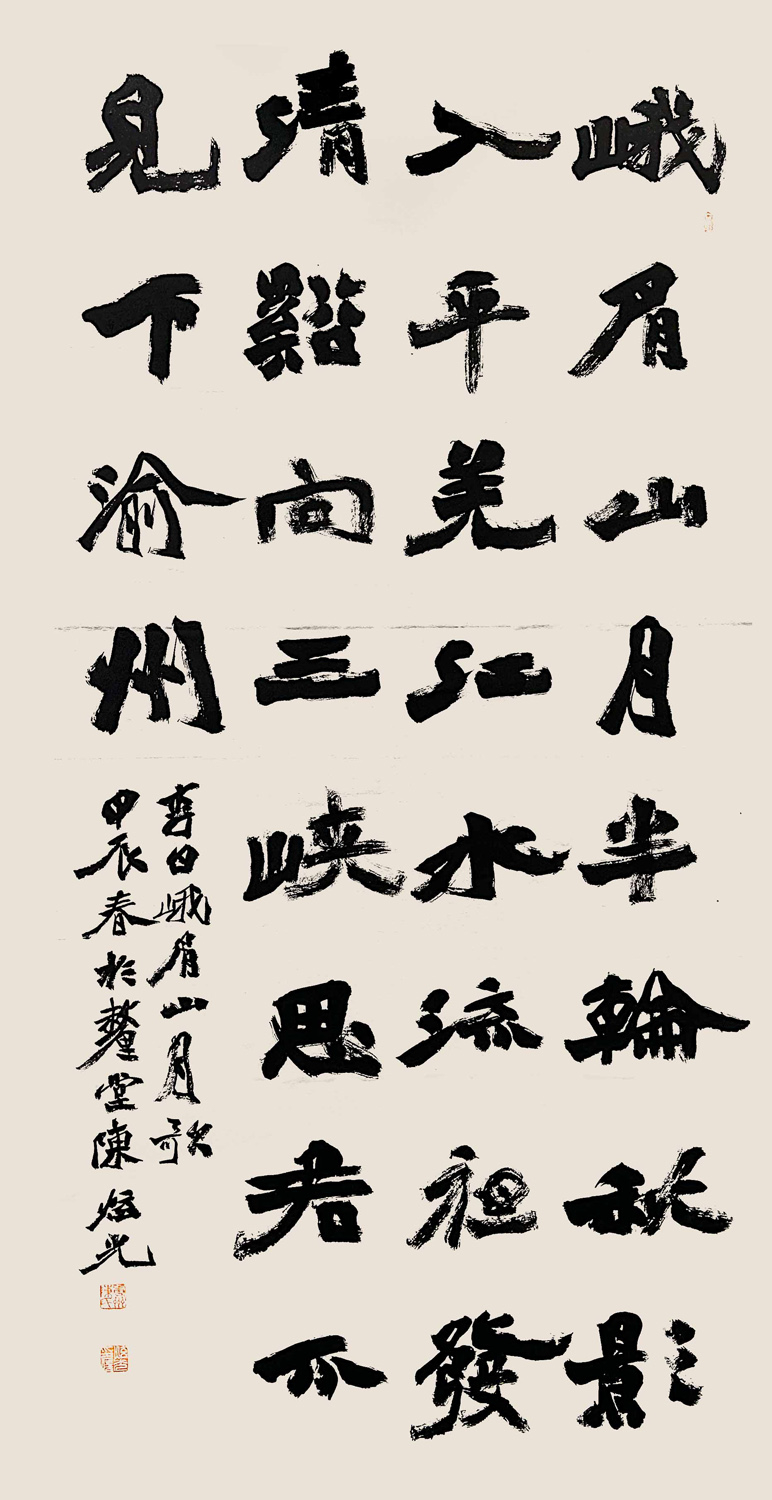 峨眉山月半輪秋影
入平羌江水流發
清谿向三峽思君不
見下渝州
李白峨眉山月歌
甲辰春於釐堂陳光